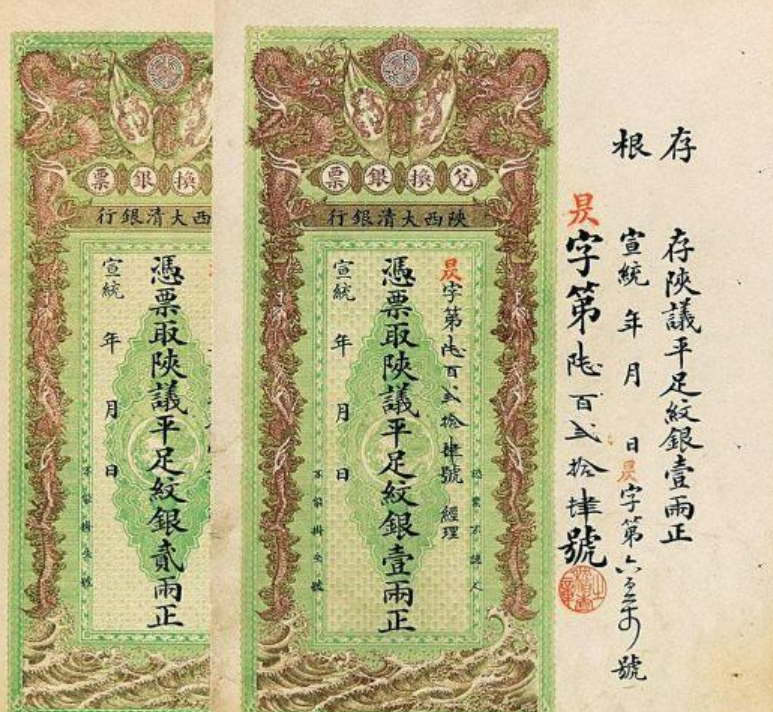 存根
存陝議平足紋銀壹兩正
宣統 年 月 日 昃字第六 號
昃字第陸百弍拾肆號
兌換銀票
陝西大清銀行
昃字第陸百弍拾肆號 經理
憑票取陝議平足紋銀壹兩正
宣統 年 月 日
認票不認人
換銀票
西大清銀行
憑票取陝議平足紋銀貳兩正
宣統 年 月 日